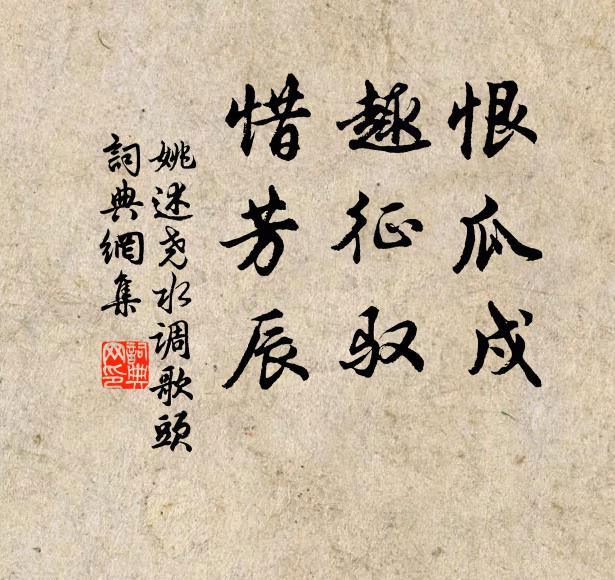 恨瓜戍
趣征驭
惜芳辰
姚述尧水调歌頭
詞典網集
詞典网印